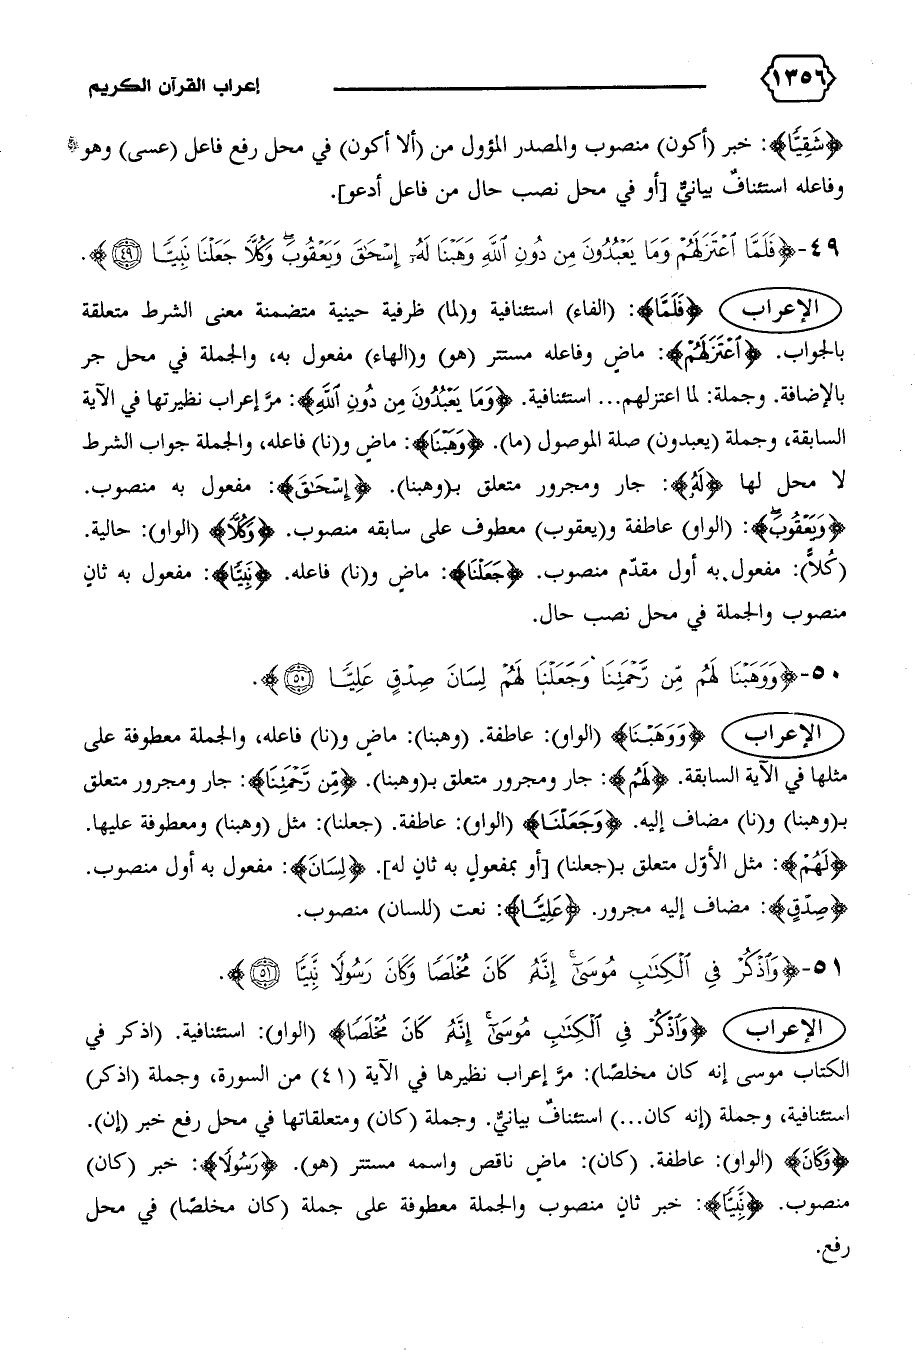 ١٣٥٦ إعراب القرآن الكريم
﴿شَقِيًّا﴾: خبر (أكون) منصوب والمصدر المؤول من (ألا أكون) في محل رفع فاعل (عسى) وهو
وفاعله استئنافٌ بيانيٌّ [أو في محل نصب حال من فاعل أدعو].
٤٩-﴿فَلَمَّا ٱعْتَزَلَهُمْ وَمَا يَعْبُدُونَ مِن دُونِ ٱللَّهِ وَهَبْنَا لَهُۥٓ إِسْحَٰقَ وَيَعْقُوبَ ۖ وَكُلًّا جَعَلْنَا نَبِيًّا ٤٩﴾.
الإعراب ﴿فَلَمَّا﴾: (الفاء) استئنافية و(لما) ظرفية حينية متضمنة معنى الشرط متعلقة
بالجواب. ﴿ٱعْتَزَلَهُمْ﴾: ماضٍ وفاعله مستتر (هو) و(الهاء) مفعول به، والجملة في محل جر
بالإضافة. وجملة: لما اعتزلهم... استئنافية. ﴿وَمَا يَعْبُدُونَ مِن دُونِ ٱللَّهِ﴾: مرَّ إعراب نظيرتها في الآية
السابقة، وجملة (يعبدون) صلة الموصول (ما). ﴿وَهَبْنَا﴾: ماضٍ و(نا) فاعله، والجملة جواب الشرط
لا محل لها ﴿لَهُۥٓ﴾: جار ومجرور متعلق بـ(وهبنا). ﴿إِسْحَٰقَ﴾: مفعول به منصوب.
﴿وَيَعْقُوبَ ۖ﴾: (الواو) عاطفة و(يعقوب) معطوف على سابقه منصوب. ﴿وَكُلًّا﴾ (الواو): حالية.
(كُلاًّ): مفعول به أول مقدّم منصوب. ﴿جَعَلْنَا﴾: ماضٍ و(نا) فاعله. ﴿نَبِيًّا﴾: مفعول به ثانٍ
منصوب والجملة في محل نصب حال.
٥٠-﴿وَوَهَبْنَا لَهُم مِّن رَّحْمَتِنَا وَجَعَلْنَا لَهُمْ لِسَانَ صِدْقٍ عَلِيًّا ٥٠﴾.
الإعراب ﴿وَوَهَبْنَا﴾ (الواو): عاطفة. (وهبنا): ماضٍ و(نا) فاعله، والجملة معطوفة على
مثلها في الآية السابقة. ﴿لَهُم﴾: جار ومجرور متعلق بـ(وهبنا). ﴿مِّن رَّحْمَتِنَا﴾: جار ومجرور متعلق
بـ(وهبنا) و(نا) مضاف إليه. ﴿وَجَعَلْنَا﴾ (الواو): عاطفة. (جعلنا): مثل (وهبنا) ومعطوفة عليها.
﴿لَهُمْ﴾: مثل الأوّل متعلق بـ(جعلنا) [أو بمفعولٍ به ثانٍ له]. ﴿لِسَانَ﴾: مفعول به أول منصوب.
﴿صِدْقٍ﴾: مضاف إليه مجرور. ﴿عَلِيًّا﴾: نعت (للسان) منصوب.
٥١-﴿وَٱذْكُرْ فِى ٱلْكِتَٰبِ مُوسَىٰٓ ۚ إِنَّهُۥ كَانَ مُخْلَصًا وَكَانَ رَسُولًا نَّبِيًّا ٥١﴾.
الإعراب ﴿وَٱذْكُرْ فِى ٱلْكِتَٰبِ مُوسَىٰٓ ۚ إِنَّهُۥ كَانَ مُخْلَصًا﴾ (الواو): استئنافية. (اذكر في
الكتاب موسى إنه كان مخلصًا): مرَّ إعراب نظيرها في الآية (٤١) من السورة، وجملة (اذكر)
استئنافية، وجملة (إنه كان...) استئنافٌ بيانيٌّ. وجملة (كان) ومتعلقاتها في محل رفع خبر (إن).
﴿وَكَانَ﴾ (الواو): عاطفة. (كان): ماضٍ ناقص واسمه مستتر (هو). ﴿رَسُولًا﴾: خبر (كان)
منصوب. ﴿نَّبِيًّا﴾: خبر ثانٍ منصوب والجملة معطوفة على جملة (كان مخلصًا) في محل
رفع.